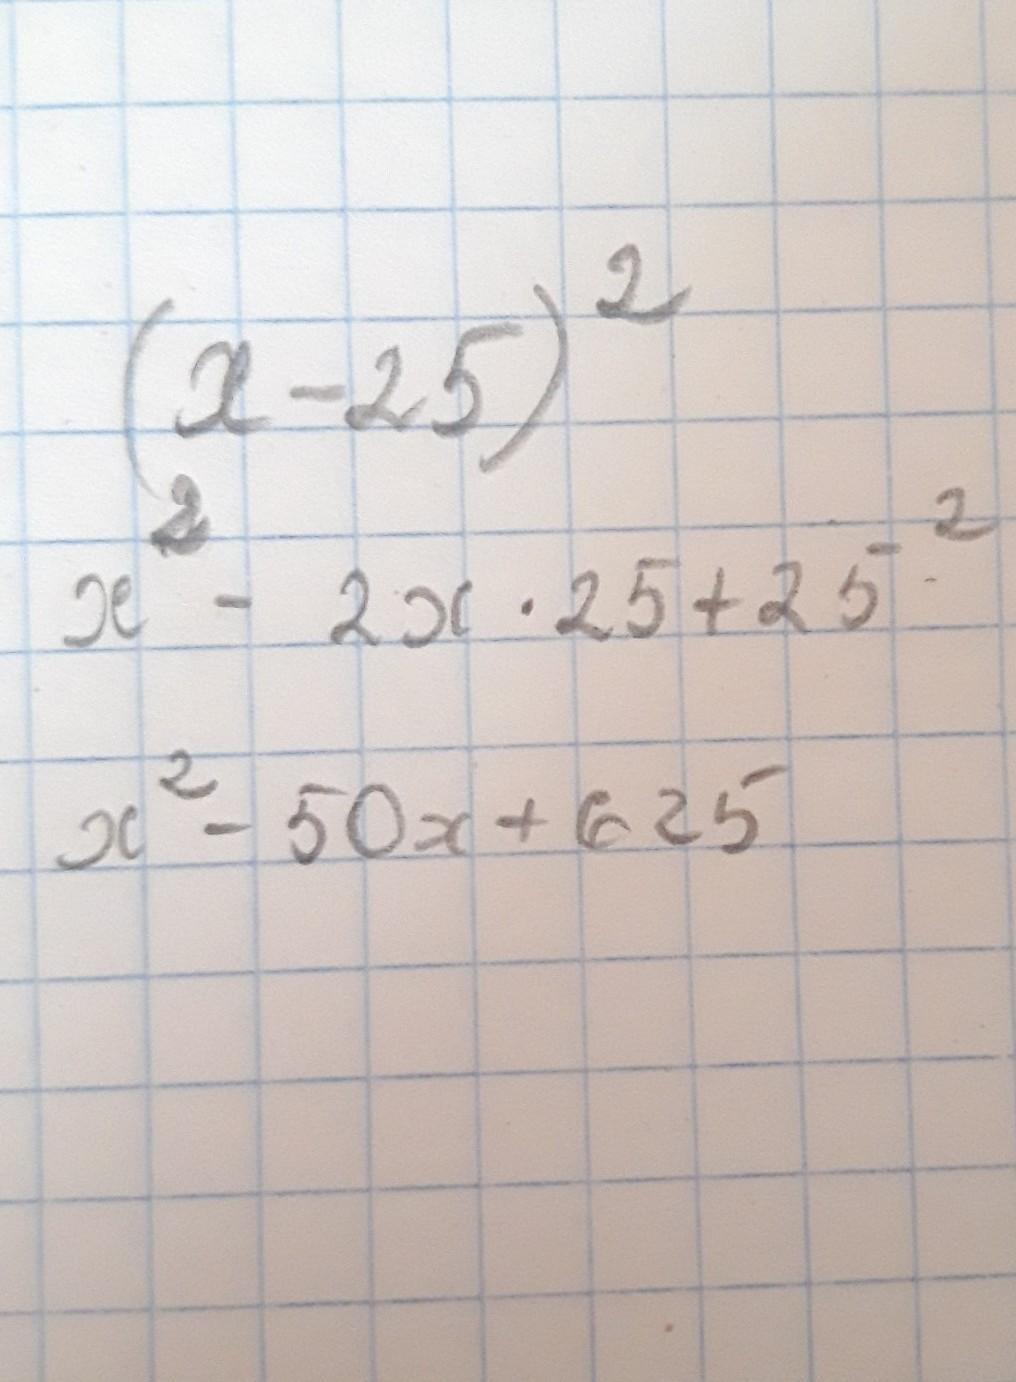 (x-25)²
x² - 2x · 25 + 25²
x² - 50x + 625